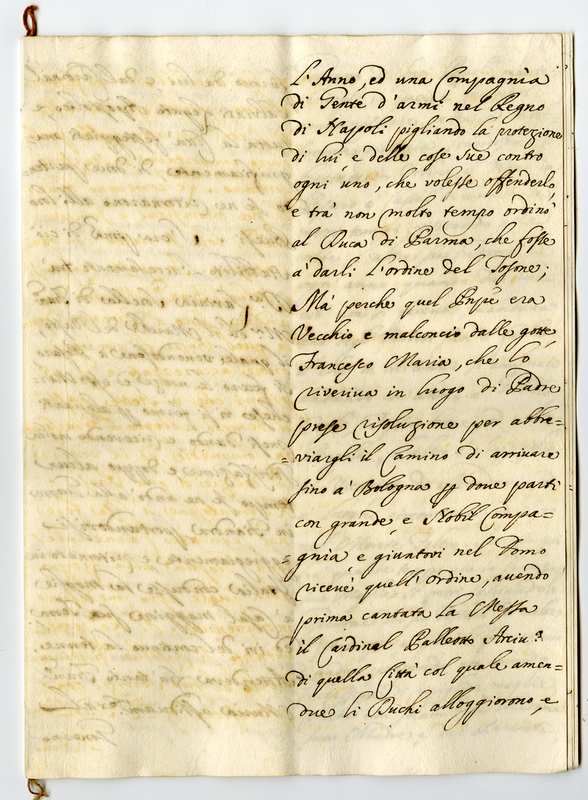 L'Anno, ed una Compagnia
di Gente d'armi nel Regno
di Napoli pigliando la protezione
di lui, e delle cose sue contro
ogni uno, che volesse offenderlo,
e trà non molto tempo ordinò
al Duca di Parma, che fosse
à darli l'ordine del Tosone;
Mà perche quel Pnpe era
Vecchio, e malconcio dalle gotte
Francesco Maria, che lo
riveriva in luogo di Padre
prese risoluzione per abbre=
=viargli il Camino di arrivare
sino à Bologna dove partì
con grande, e Nobil Compa=
=gnia, e giuntovi nel Domo
ricevè quell'ordine, avendo
prima cantata la Messa
il Cardinal Palleotto Arciu.º
di quella Città col quale amen=
due li Duchi alloggiorono, e